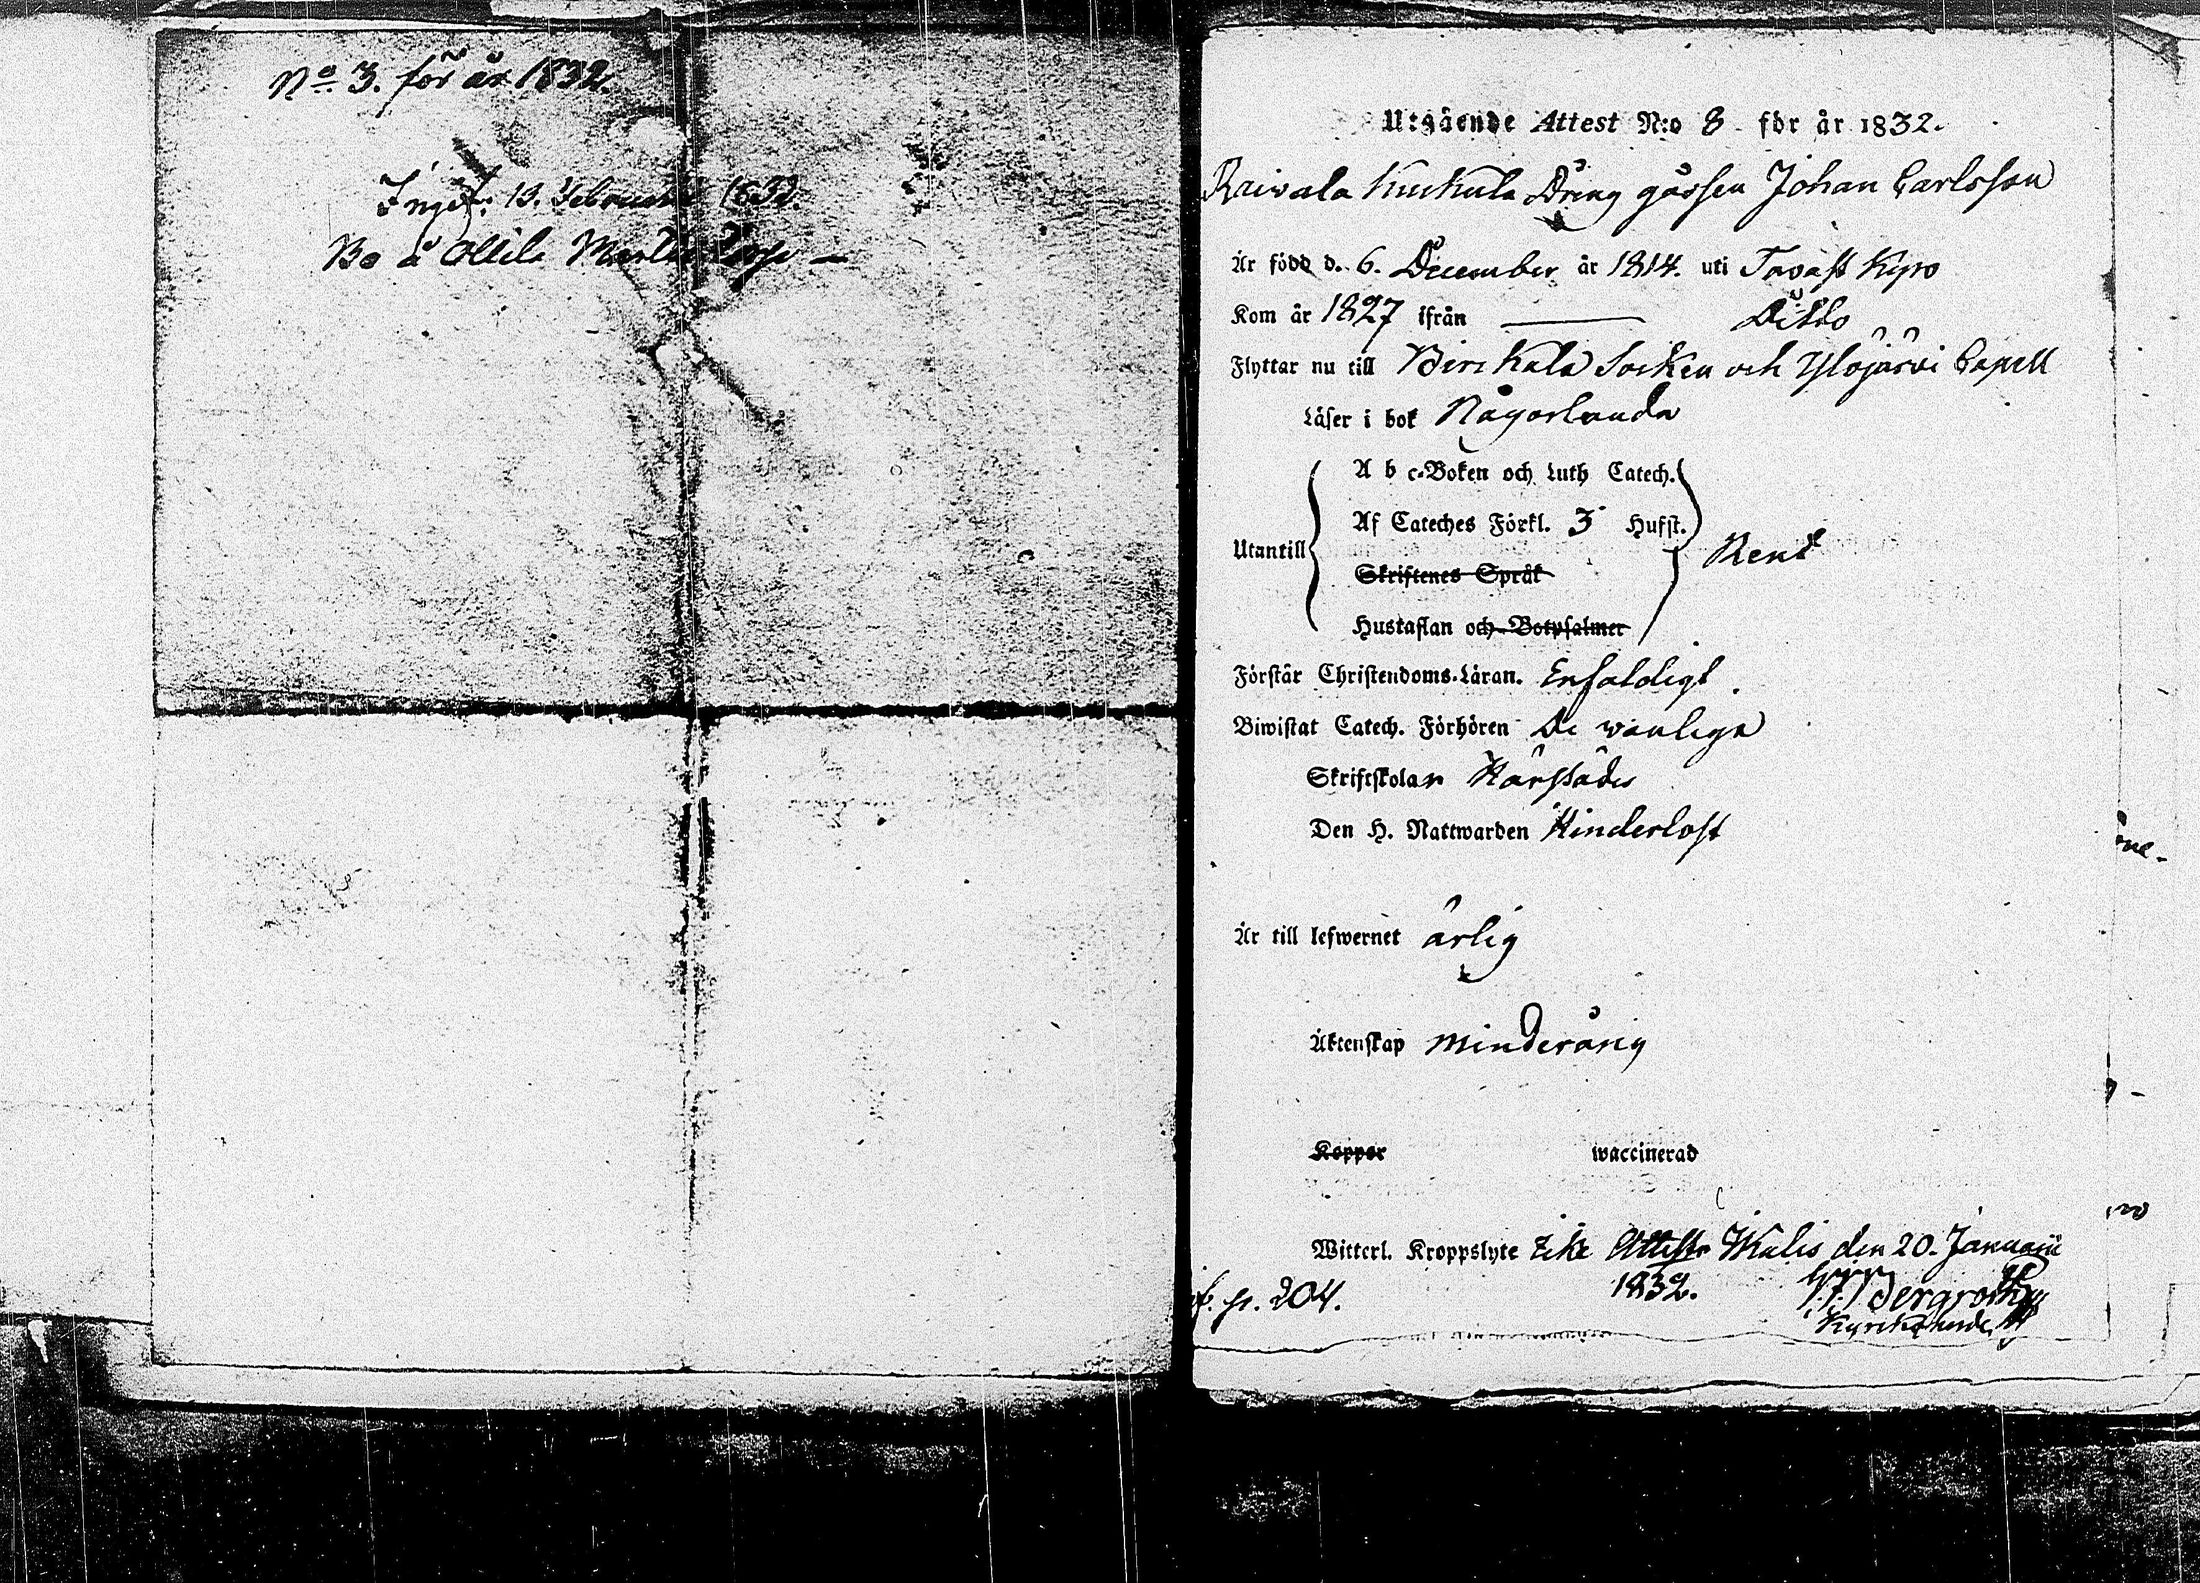 No 3. för år 1832.
Ingif: 13. Februarii 1832.
Bo å Martti
Utgående Attest N:o 8 för år 1832.
Raivala Kuckula Dräng gåssen Johan Carlsson
Är född d. 6. December år 1814. uti Tavast Kyro
Kom år 1827 ifrån — Ditto
Flyttar nu till Birckala Socken och Ylöjärvi Capell
Läser i bok Någorlunda
A b c-Boken och Luth Catech.
Af Cateches Förkl. 3 Hufst.
Utantill Rent
Skriftenes Språk
Hustaflan och Botpsalmer
Förstår Christendoms-Läran. Enfaldigt.
Biwistat Catech. Förhören De wanliga
Skriftskolan Härstädes
Den H. Nattwarden Hinderlöst
Är till lefwernet ärlig
Äktenskap minderårig
Koppor waccinerad
Witterl. Kroppslyte icke Attesterar Ikalis den 20. Januarii
1832. Bergroth
p. 204.
Kyrckoherde